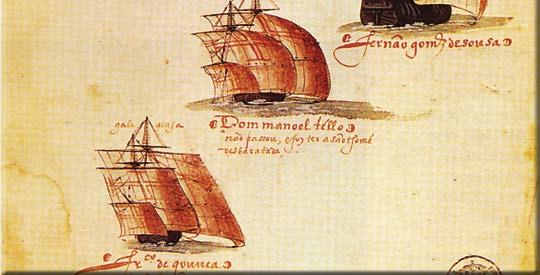 fernão gomz de sousa
Dom manoel tello
não passou, e foy ter a são thomé
desbaratada
gale
frco de gouuea